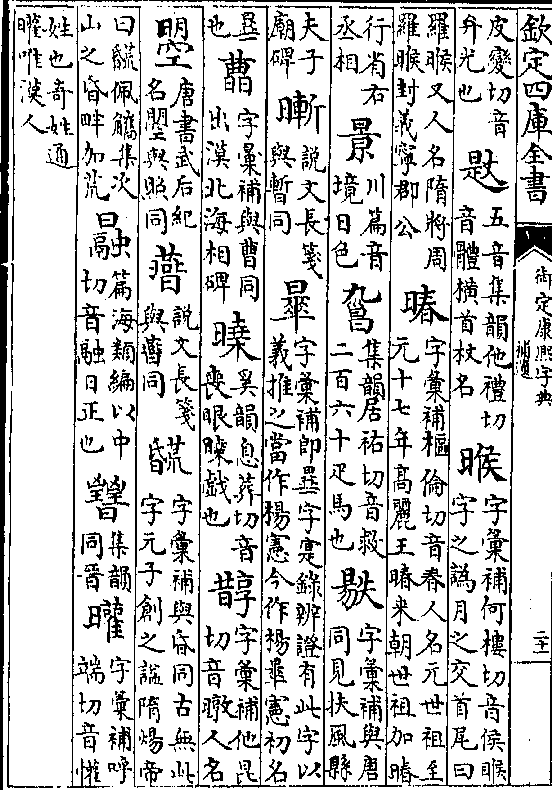 欽定四庫全書
御定康熙字典
補遺
二十
皮變切音
弁光也
五音集韻他禮切
音體橫首杖名
㬋
字彙補何樓切音侯㬋
字之譌月之交首尾曰
羅㬋又人名隋將周
羅㬋封義寧郡公
暙
字彙補樞倫切音春人名元世祖至
元十七年高麗王暙來朝世祖加暙
行省右
丞相
景
川篇音
境日色
集韻居祐切音救
二百六十疋馬也
字彙補與唐
同見扶風縣
夫子
廟碑
說文長箋
與暫同
字彙補即㬪字寔錄辨證有此字以
義推之當作楊憲今作楊㬪憲初名
㬪
也
字彙補與曹同
出漢北海相碑
奚韻息葬切音
喪眼戲也
字彙補他昆
切音暾人名
曌
唐書武后紀
名曌與照同
說文長箋
與同
字彙補與昏同古無此
字元子創之謚隋煬帝
曰佩觿集次
山之昏畔加荒
篇海類編以中
切音融日正也
集韻
同晉
字彙補呼
端切音懽
姓也奇姓通
唯漢人